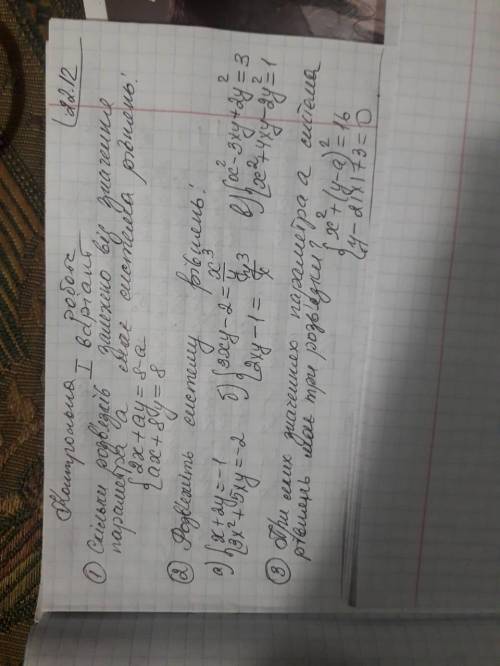 22.12
Контрольна робота
I варіант
① Скільки розв'язків залежно від значення
параметра a має система рівнянь:
{2x+ay=8-a
{ax+8y=8
② Розв'яжіть систему рівнянь:
а) {x+2y=-1
{3x²+5xy=-2
б) {3xy-2=x³/y
{2xy-1=y³/x
в) {x²-3xy+2y²=3
{x²+4xy-2y²=1
③ При яких значеннях параметра a система
рівнянь має три розв'язки?
{x²+(y-a)²=16
{y-2|x|+3=0